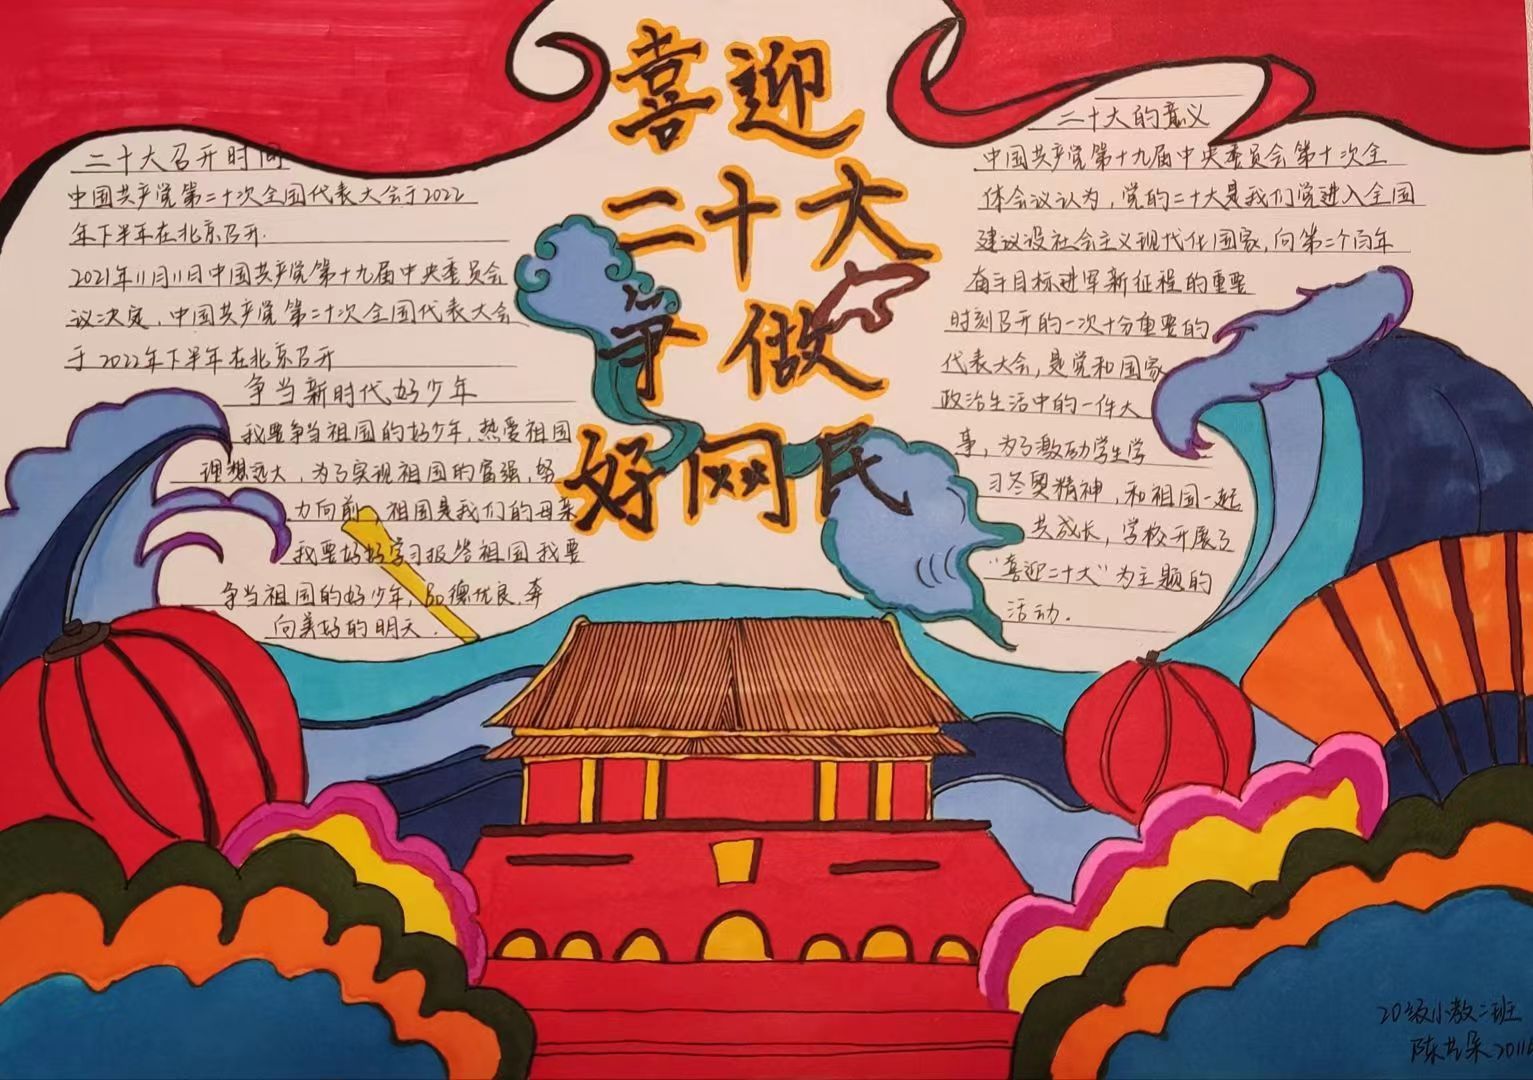 喜迎
二十大
争做
好网民
二十大召开时间
中国共产党第二十次全国代表大会于2022
年下半年在北京召开.
2021年11月11日中国共产党第十九届中央委员会
议决定，中国共产党第二十次全国代表大会
于2022年下半年在北京召开
争当新时代好少年
我要争当祖国的好少年，热爱祖国
理想远大，为了实现祖国的富强，努
力向前，祖国是我们的母亲
我要好好学习报答祖国我要
争当祖国的好少年，品德优良，奔
向美好的明天.
二十大的意义
中国共产党第十九届中央委员会第十次全
体会议认为，党的二十大是我们党进入全国
建议设社会主义现代化国家，向第二个百年
奋斗目标进军新征程的重要
时刻召开的一次十分重要的
代表大会，是党和国家
政治生活中的一件大
事，为了激励学生学
习冬奥精神，和祖国一起
共成长，学校开展了
“喜迎二十大”为主题的
活动.
20级小教二班
陈 朵 2011